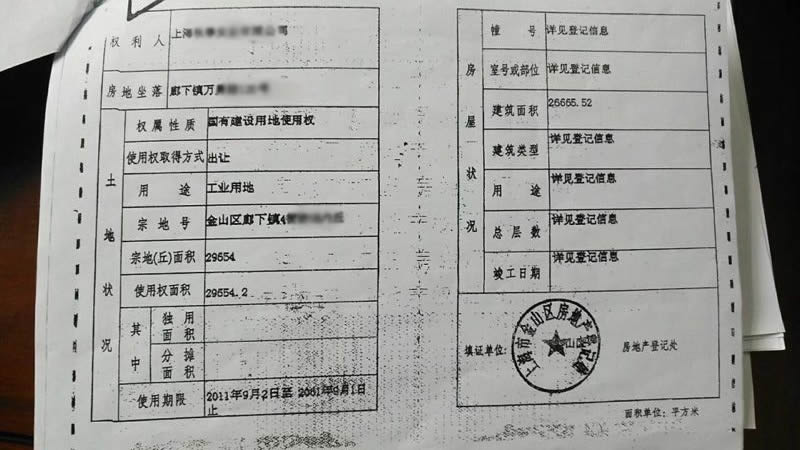 权利人 上海 司
房地坐落 廊下镇万
土地状况
权属性质 国有建设用地使用权
使用权取得方式 出让
用途 工业用地
宗地号 金山区廊下镇
宗地(丘)面积 29554
使用权面积 29554.2
其中 独用面积
分摊面积
使用期限 2011年9月2日至 2061年9月1日
止
房屋状况
幢号 详见登记信息
室号或部位 详见登记信息
建筑面积 26665.52
建筑类型 详见登记信息
用途 详见登记信息
总层数 详见登记信息
竣工日期 详见登记信息
填证单位: 房地产登记处
上海市金山区房地产登记处
面积单位: 平方米